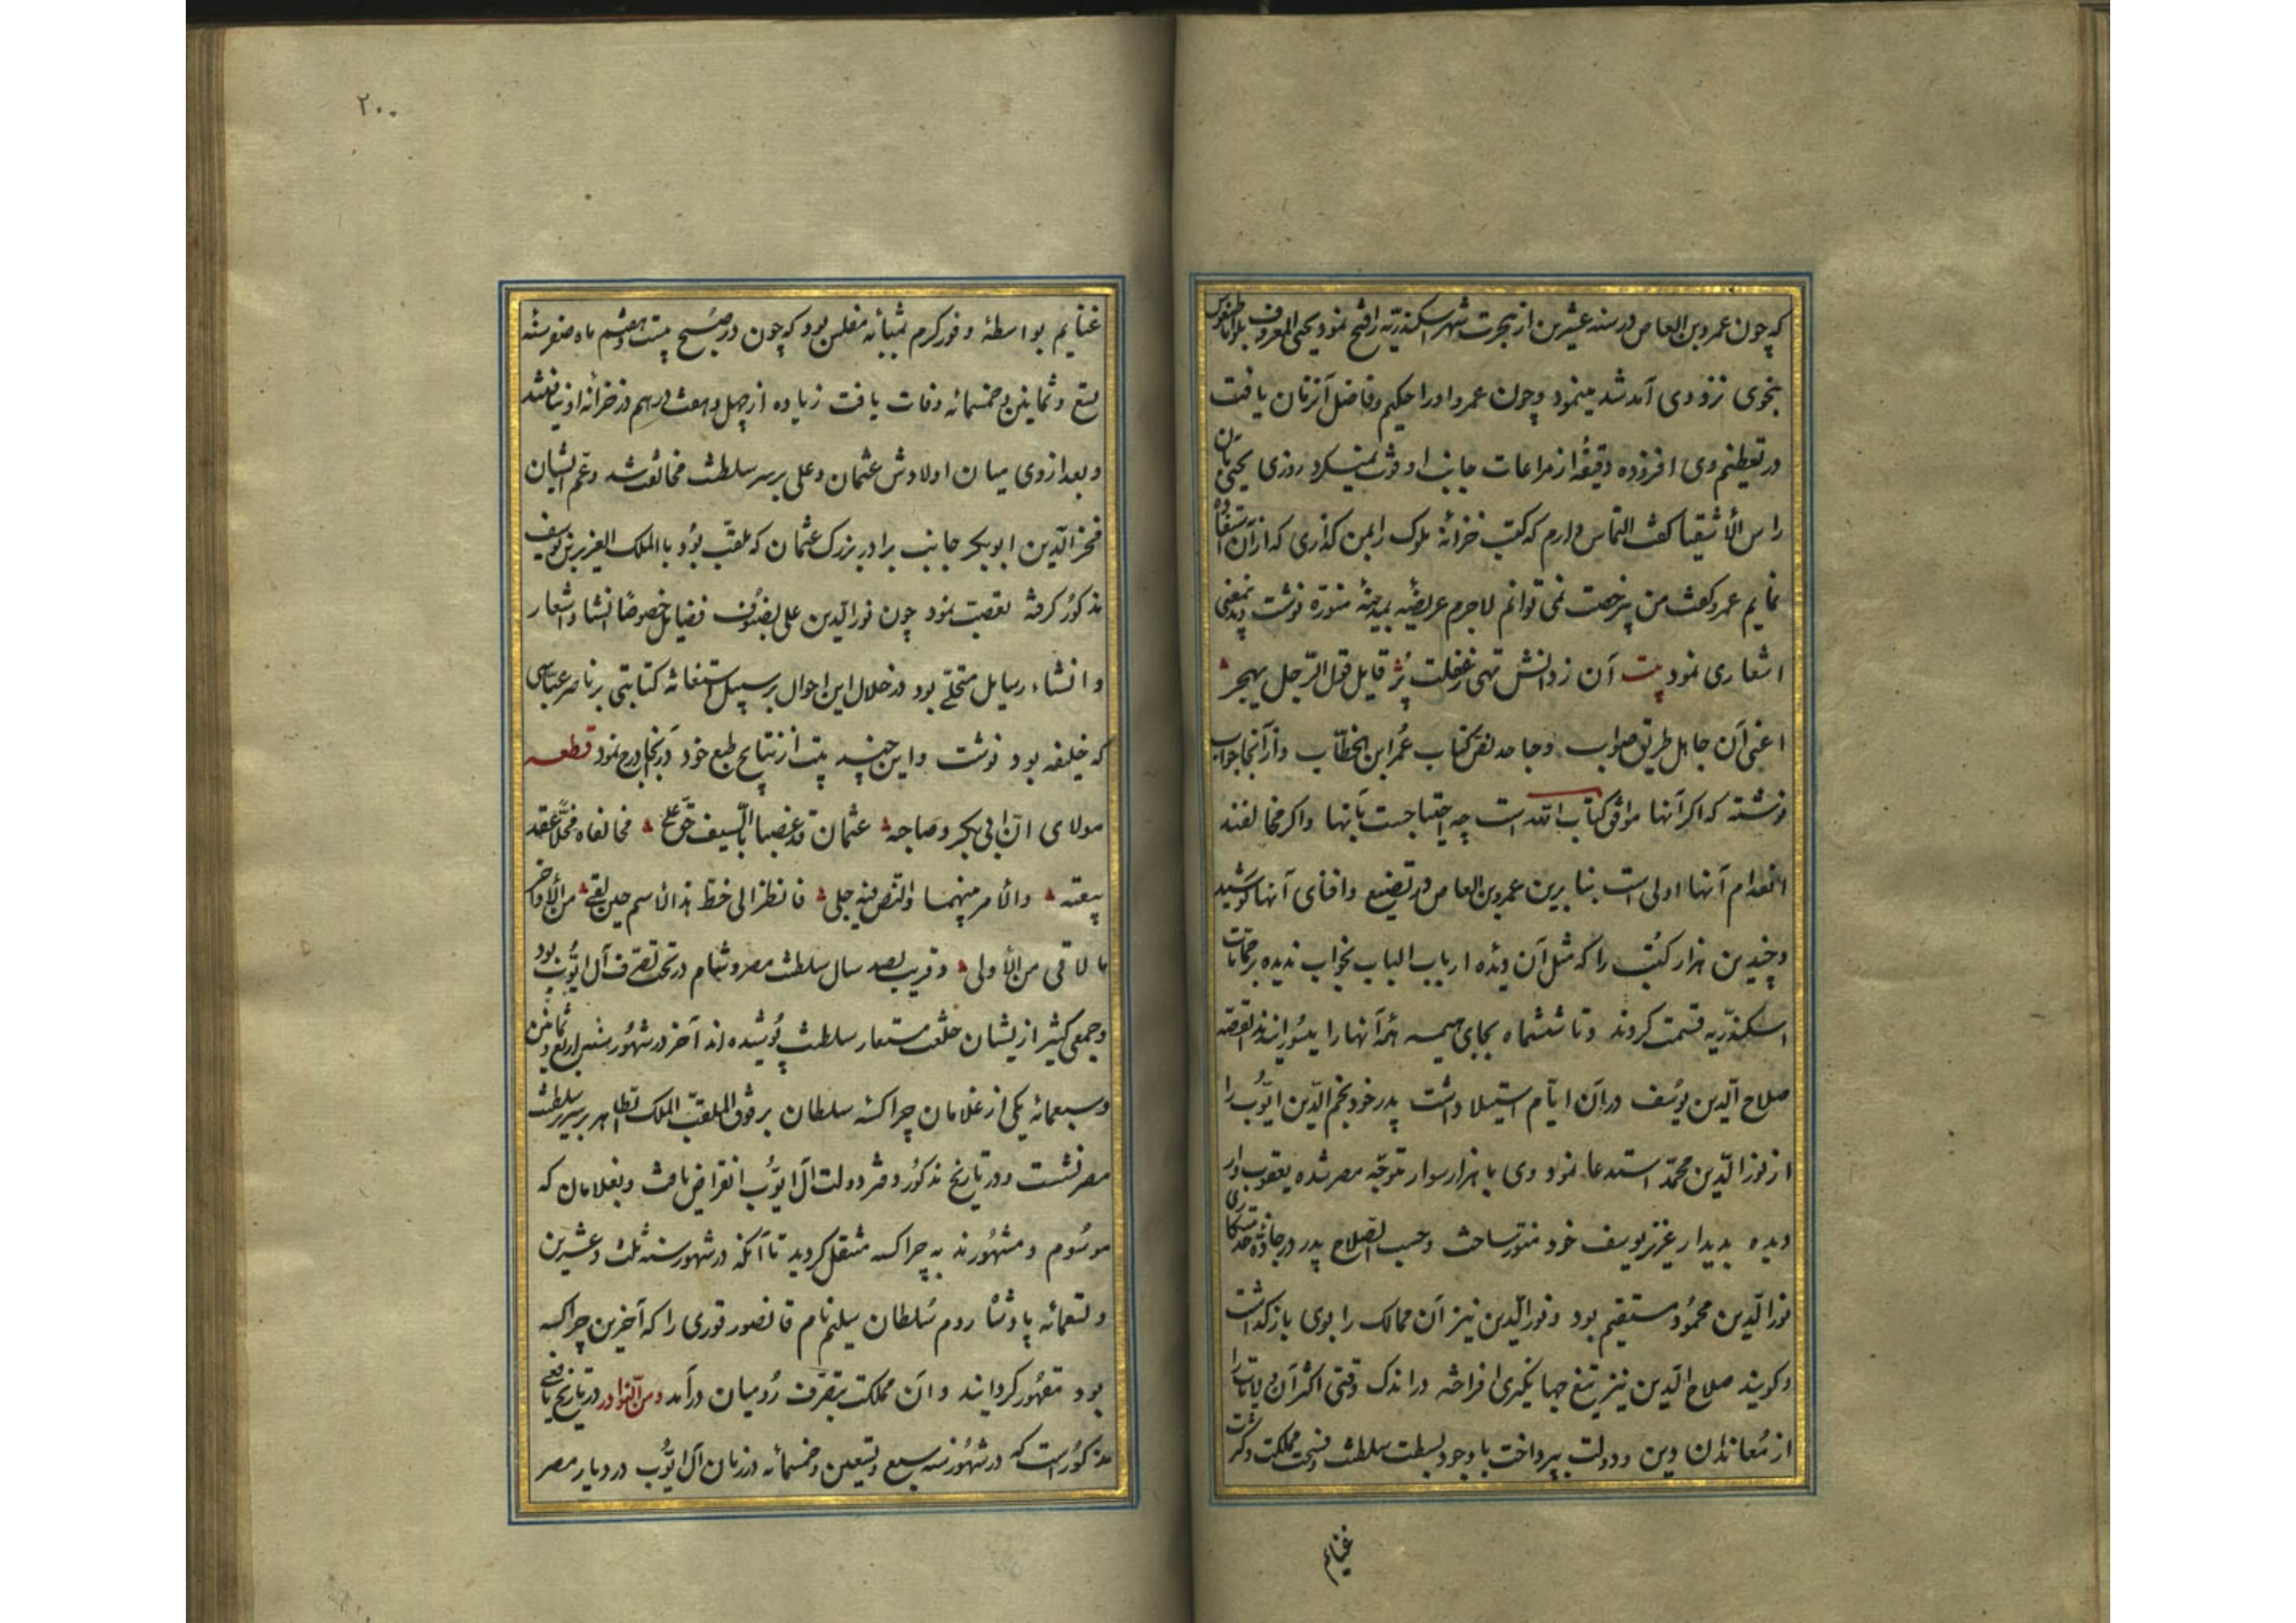 که چون عمرو بن العاص در سنه عشرین از هجرت شهر اسکندریه را فتح نمود و یحیی المعروف
نزد وی آمد شد مینمود و چون عمرو او را حکیم و فاضل آنزمان یافت
در تعظیم وی افزوده دقیقه از مراعات جانب او فوت نمیکرد روزی یحیی بآن
راس الأشقیا کفت التماس دارم که کتب خزانه ملوک را بمن کذاری که از آن استفاده
نمایم عمرو کفت من بیرخصت نمی توانم لاجرم عریضه بمدینه منوره نوشت و بدمعنی
اشعاری نمود بیت آن ز دانش تهی ز غفلت پر قایل قول الرجل یهجر
اعنی آن جاهل طریق صواب و جاحد نص کتاب عمر ابن الخطاب و از آنجا جواب
نوشته که اکر آنها موافق کتاب الله است چه احتیاجست بآنها و اکر مخالفند
انعدام آنها اولی است بنا برین عمرو بن العاص در تضییع و افنای آنها کوشید
و چندین هزار کتب را که مثل آن دیده ارباب الباب بخواب ندیده بر حمامات
اسکندریه قسمت کردند و تا ششماه بجای هیمه همه آنها را میسوزانیدند القصه
صلاح الدین یوسف در آن ایام استیلا داشت پدر خود نجم الدین ایوب را
از نور الدین محمد استدعا نمود وی با هزار سوار متوجه مصر شده یعقوب وار
دیده بدیدار عزیز یوسف خود منور ساخت و حسب الصلاح پدر در جاده خدمتکاری
نور الدین محمود مستقیم بود و نور الدین نیز آن ممالک را بوی بازکذاشت
و کویند صلاح الدین نیز تیغ جهانکیری افراخته در اندک وقتی اکثر آن ولایات را
از معاندان دین و دولت بپرداخت با وجود بسطت سلطنت و فسحت مملکت و کثرت
غنایم
۲۰۰
غنایم بواسطه وفور کرم بمثابه مفلس بود که چون در صبح بیست و هفتم ماه صفر سنه
تسع و ثمانین و خمسمائه وفات یافت زیاده از چهل و هفت درهم در خزانه او نیافتند
و بعد از وی میان اولادش عثمان و علی بر سر سلطنت مخالفت شد و عم ایشان
فخر الدین ابوبکر جانب برادر بزرک عثمان که ملقب بود با الملک العزیز بن یوسف
مذکور کرفته تعصب نمود چون نور الدین علی بفنون فضایل خصوصا انشا و اشعار
و انشاء رسایل متحلی بود در خلال این احوال بر سبیل استغاثه کتابتی بر ناصر عباسی
که خلیفه بود نوشت و این چند بیت از نتایج طبع خود در آنجا درج نمود قطعه
مولای ان ابی بکر و صاحبه عثمان قد غصبا بالسیف حق علی فخالفاه فحلا عقد
بیعته والأمر بینهما والنص فیه جلی فانظر الی خط هذا الاسم حین لقی من الأواخر
ما لاقی من الأولی و قریب بصد سال سلطنت مصر و شام در تحت تصرف آل ایوب بود
و جمعی کثیر از یشان خلعت مستعار سلطنت پوشیده اند آخر در شهور سنه اربع و ثمانین
و سبعمائه یکی از غلامان چراکسه سلطان برقوق الملقب الملک الظاهر بر سریر سلطنت
مصر نشست و در تاریخ مذکور دفتر دولت آل ایوب انقراض یافت و بغلامان که
موسوم و مشهورند به چراکسه منتقل کردید تا آنکه در شهور سنه ثلث و عشرین
و تسعمائه پادشاه روم سلطان سلیم نام قانصور غوری را که آخرین چراکسه
بود مقهور کردانید و آن مملکت بتصرف رومیان درآمد و من النوادر در تاریخ یافعی
مذکور است که در شهور سنه سبع و تسعین و خمسمائه در زمان آل ایوب در دیار مصر